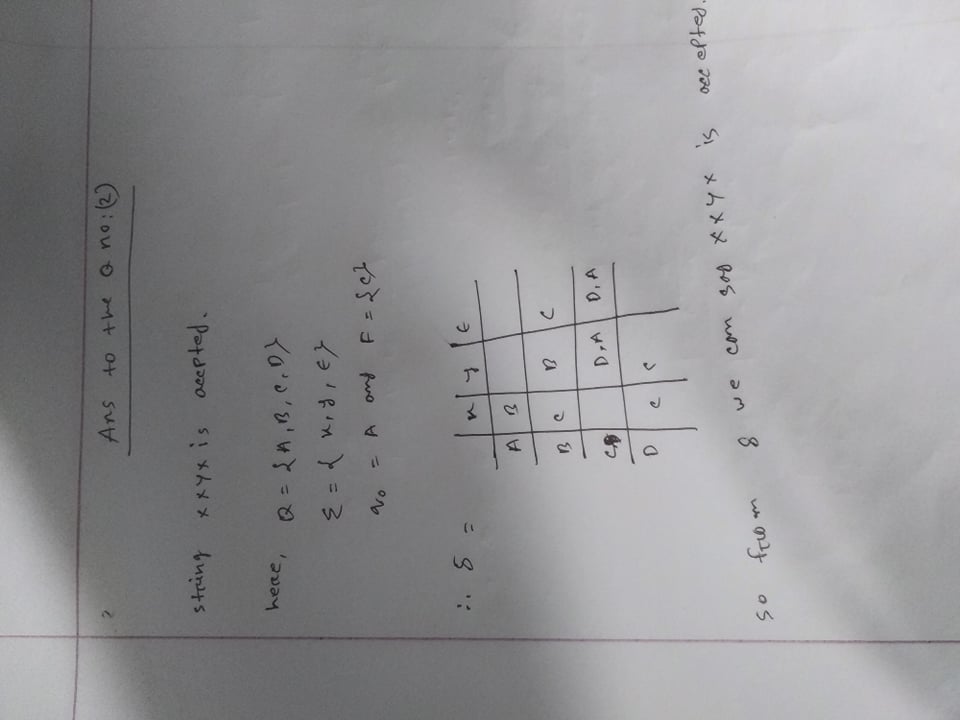 Ans to the Q no:(2)
string xxyx is accepted.
here, Q = {A, B, C, D}
Σ = {x, y, ε}
q0 = A and F = {C}
∴ δ =
x y ε
A B
B C B C
C D,A D,A
D C C
so from δ we can see xxyx is accepted.